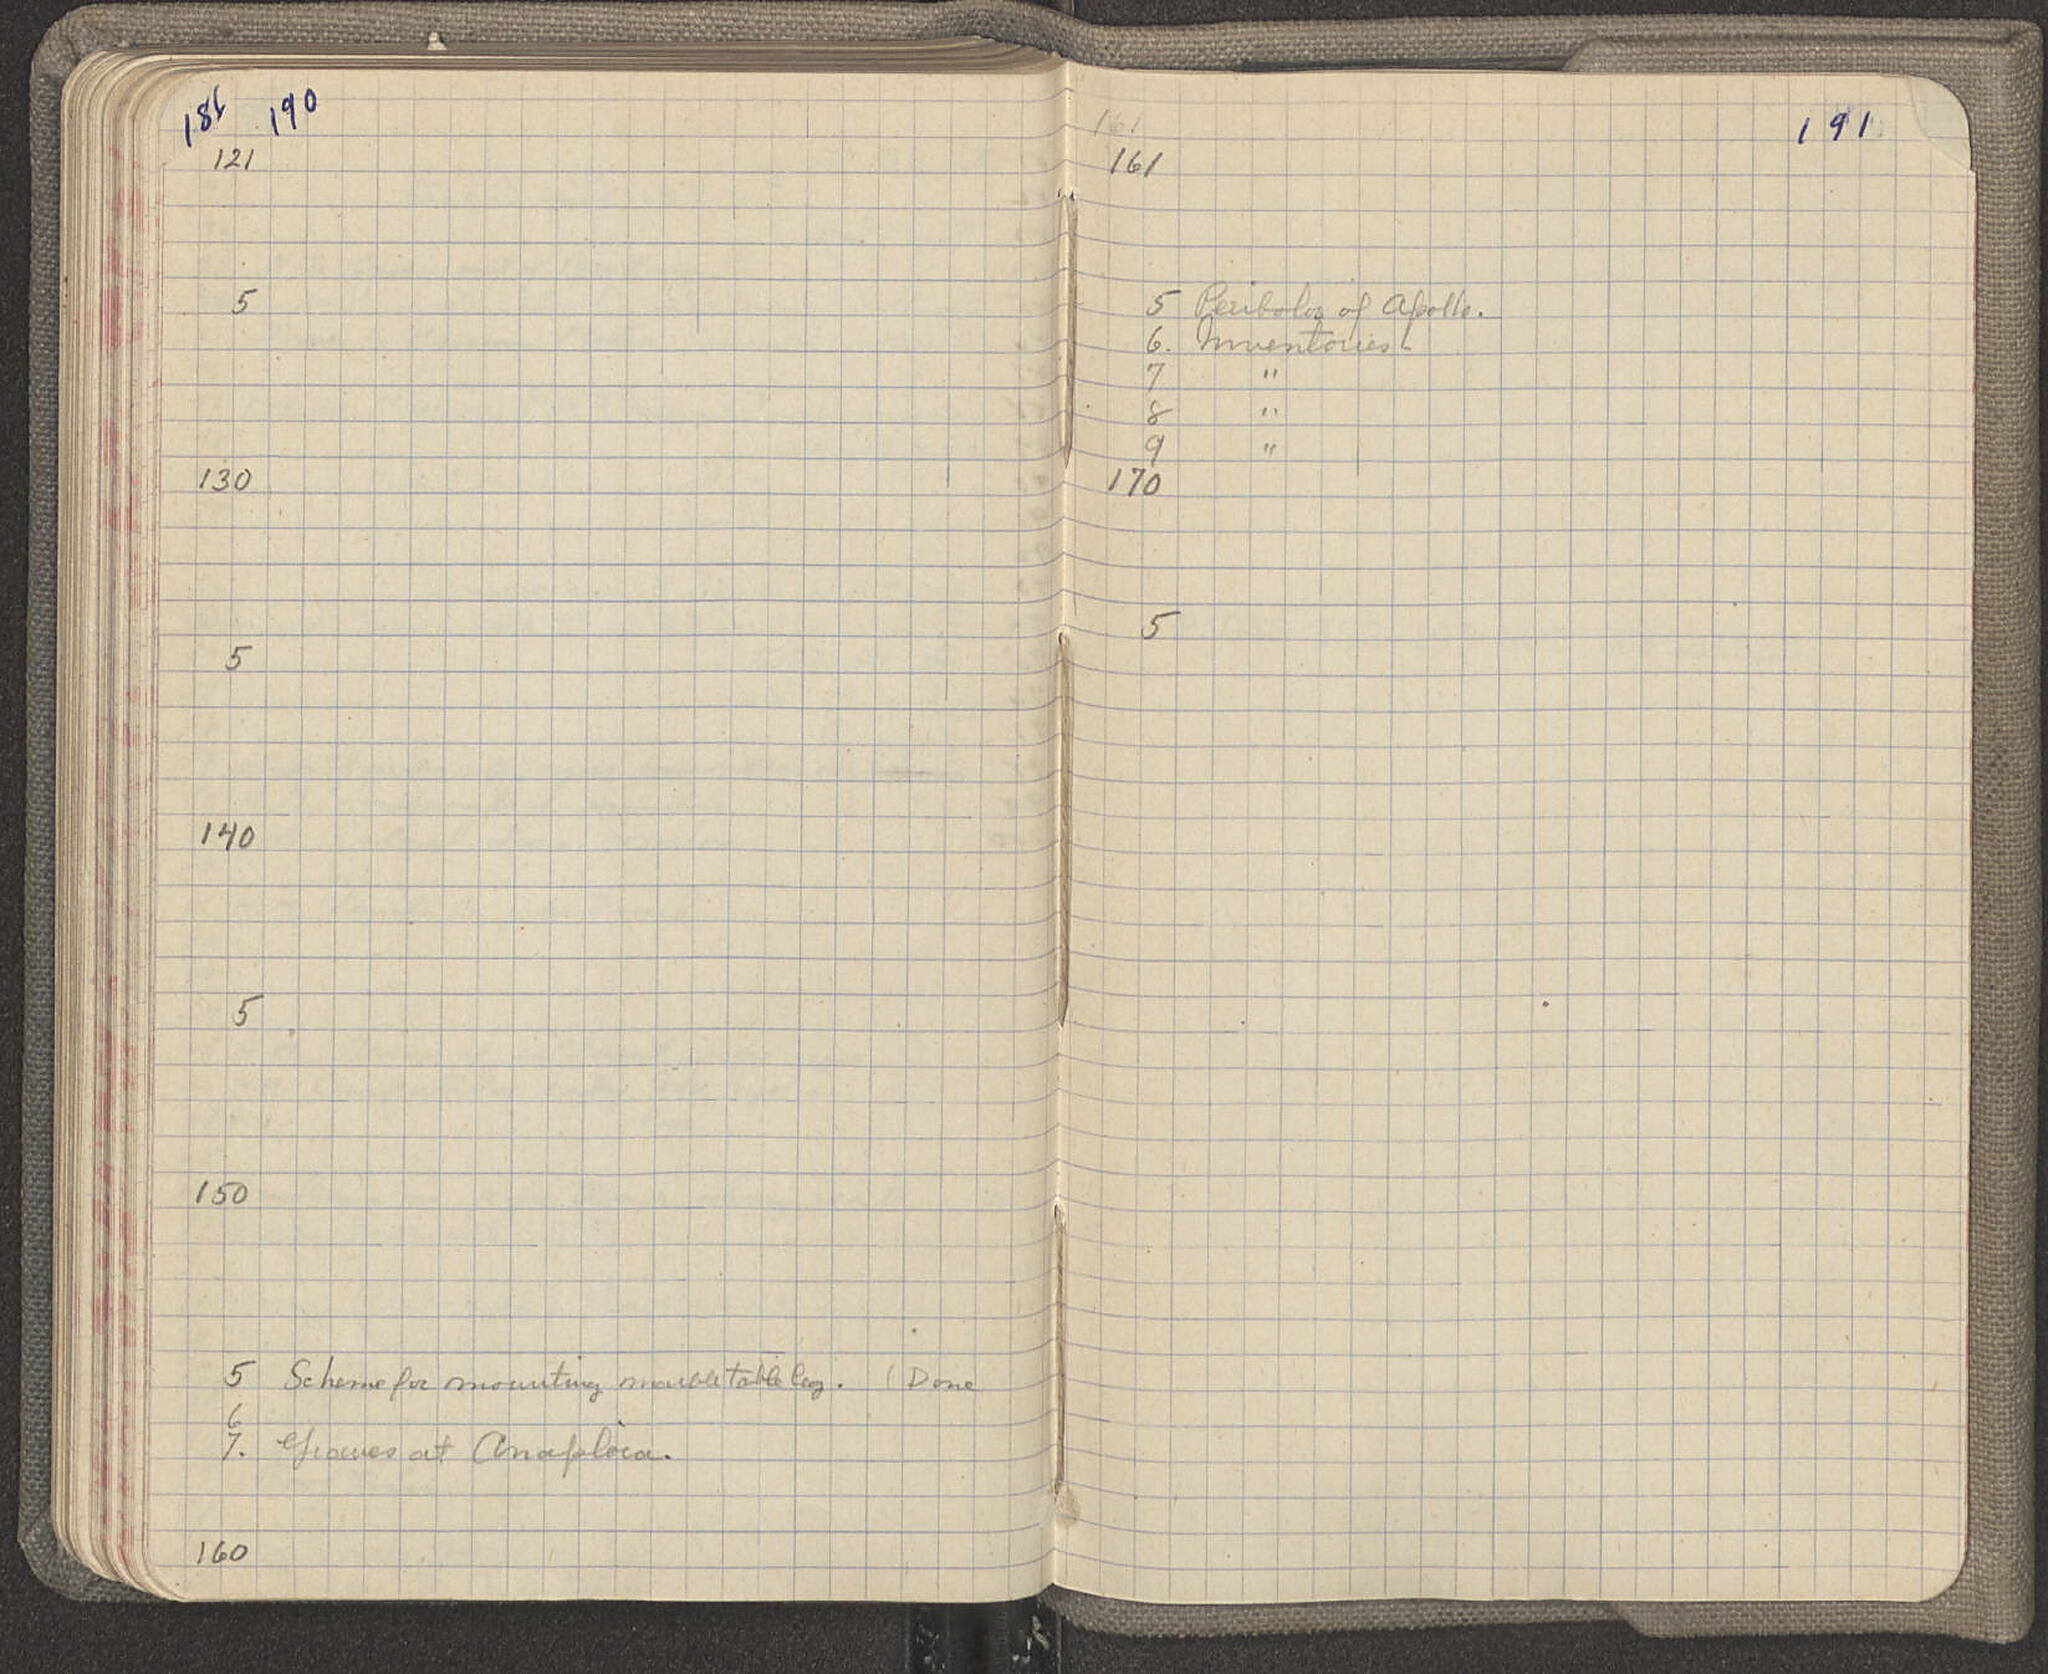 186 190
121
5
130
5
140
5
150
5 Scheme for mounting marble table leg. (Done
6
7. Graves at Anaploia.
160
161
191
161
5 Peribolos of Apollo.
6. Inventories
7 "
8 "
9 "
170
5